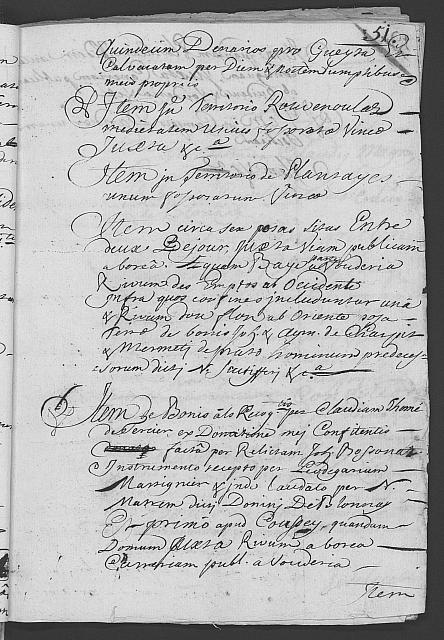 516
Quindecim Denarios pro Gueyta
Calvacatam per Diem & noctem sumptibus
meis propriis
Item in Territorio
medietatem unius fossorate Vinee
Juxta &c.a
Item in Territorio de Plantayes
unum fossorarum Vinee
Item circa sex posas sitas Entre
deux Dejour, Juxta Viam publicam
a boreâ. Aquam Baye parte a Vouderia
Rivum des Emptos ab Occidente
Infra quos confines includuntur una
& Rivum dou flon ab Oriente posa
terre de bonis Joh. & Aym. de
& Mermeti de prato hominum predeces-
sorum dicti N. &c.a
Item de Bonis als Recog.tis per Claudiam Thome
de Vercier ex Donatione mej Confitentis
facta per Relictam Joh. Bossonat
Instrumento recepto per Ludegarium
Marignier & inde laudato per N.
Matrem dicti Dominj De
Et primo apud Coupey, quandam
Domum Juxta Rivum a borea
Carreriam publ. a Vouderia
Item